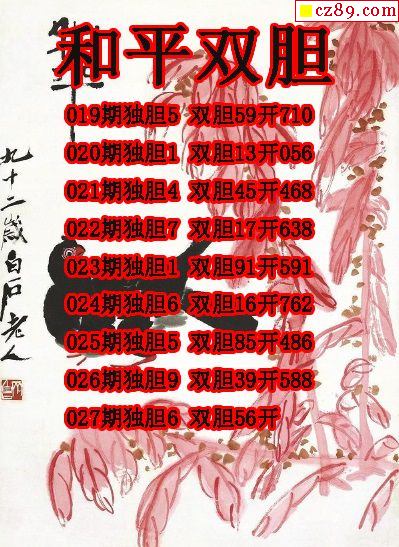 cz89.com
和平双胆
019期独胆5 双胆59开710
020期独胆1 双胆13开056
021期独胆4 双胆45开468
022期独胆7 双胆17开638
023期独胆1 双胆91开591
024期独胆6 双胆16开762
025期独胆5 双胆85开486
026期独胆9 双胆39开588
027期独胆6 双胆56开
九十二歲白石老人